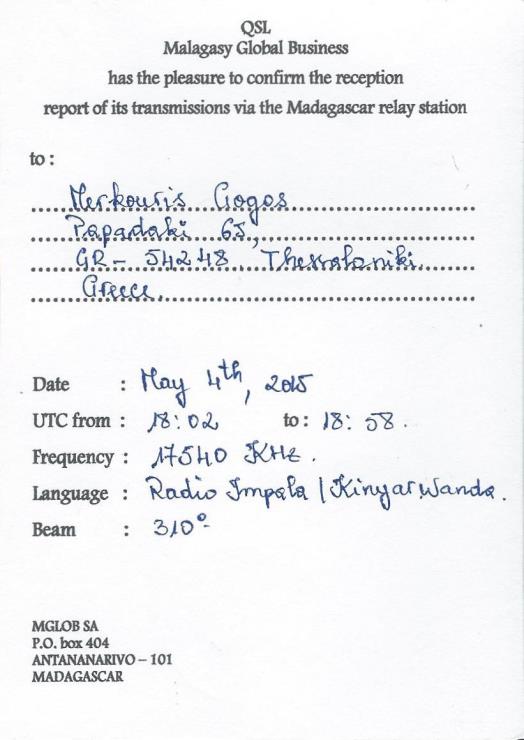 QSL
Malagasy Global Business
has the pleasure to confirm the reception
report of its transmissions via the Madagascar relay station
to :
Merkouris Gogos
Papadaki 65,
GR - 54248, Thessaloniki
Greece.
Date : May 4th, 2015
UTC from : 18:02 to : 18:58.
Frequency : 17540 KHz.
Language : Radio Impala | Kinyarwanda.
Beam : 310°
MGLOB SA
P.O. box 404
ANTANANARIVO – 101
MADAGASCAR